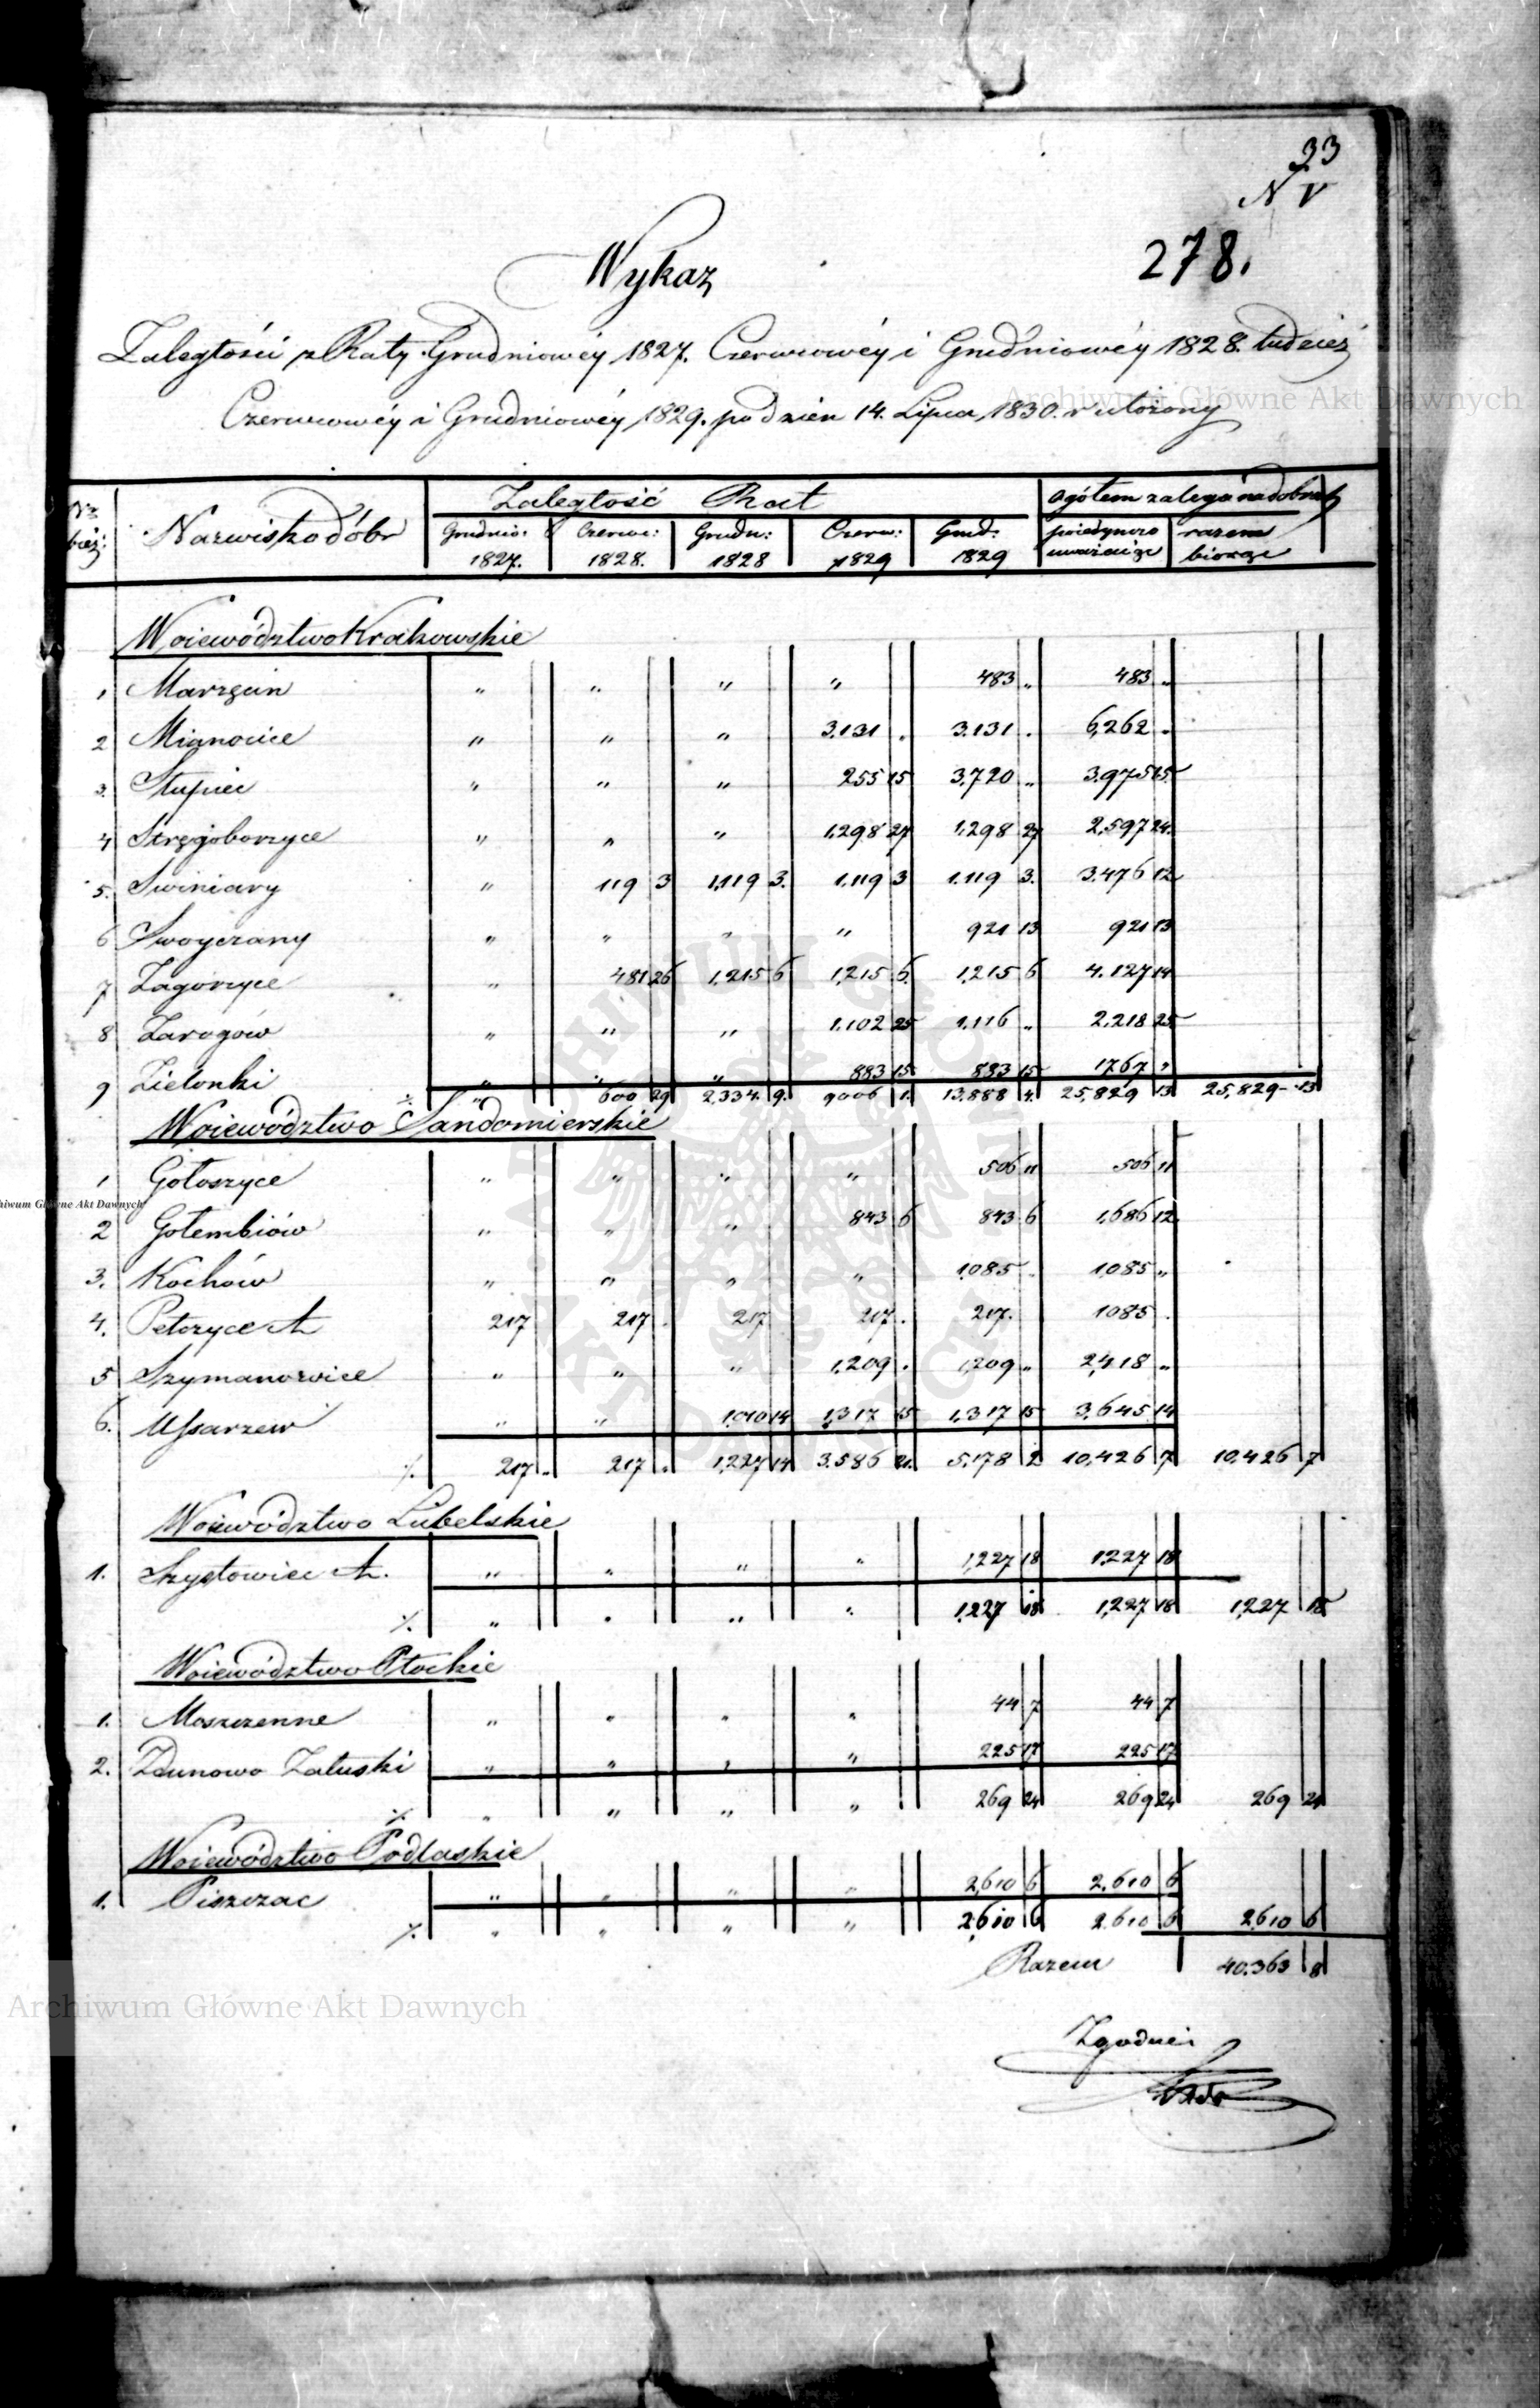 33
N V
278.
Wykaz
Zaległości z Raty Grudniowéy 1827. Czerwcowéy i Grudniowéy 1828. tudzież
Czerwcowéy i Grudniowéy 1829. po dzien 14. Lipca 1830. r. ułożony
Nr bież: Nazwisko dóbr Zaległość Rat Ogółem zalega na dobrach
Grudnio: 1827. Czerwc: 1828. Grudn: 1828 Czerw: 1829 Grud: 1829 poiedynczo uważaiąc razem biorąc
Woiewództwo Krakowskie
1 Marzęcin " " " " 483 " 483 "
2 Mianocice " " " 3.131 . 3.131 . 6,262 "
3. Słupiec " " " 255 15 3,720 " 3.975 15.
4 Stręgoborzyce " " " 1,298 27 1,298 27 2,597 24.
5. Swiniary " 119 3 1,119 3. 1,119 3 1.119 3. 3.476 12
6 Swoyczany " " " " 921 13 921 13
7 Zagorzyce " 481 26 1,215 6 1,215 6. 1,215 6 4.127 14
8 Zarogów " " " 1.102 25 1.116 " 2,218 25
9 Zielonki " " " 883 15 883 15 1767 "
%. " 600 29 2,334. 9. 9006 1. 13,888 4. 25,829 13 25,829 13
Woiewództwo Sandomierskie
1 Gołoszyce " " " " 506 11 506 11
2 Gołembiów " " " 843 6 843 6 1,686 12.
3. Kochów " " " " 1085 . 1085 "
4. Petczyce A 217 217 . 217 217 . 217. 1085 .
5 Szymanowice " " " 1,209 . 1,209 " 2,418 "
6. Ussarzew " " 1,010 14 1,317 15 1,317 15 3,645 14
%. 217 . 217 . 1,227 14 3.586 21. 5,178 2 10,426 7 10,426 7
Woiewództwo Lubelskie
1. Szystowice A. " " " " 1,227 18 1,227 18
%. " " " " 1,227 18 1,227 18 1,227 18
Woiewództwo Płockie
1. Moszczenne " " " " 44 7 44 7
2. Zdunowo Załuski " " " " 225 17 225 17
%. " " " " 269 24 269 24 269 24
Woiewództwo Podlaskie
1. Piszczac " " " " 2,610 6 2,610 6
%. " " " " 2,610 6 2,610 6 2,610 6
Razem 40.363 8
Zgodnei
Archiwum Główne Akt Dawnych
Archiwum Główne Akt Dawnych